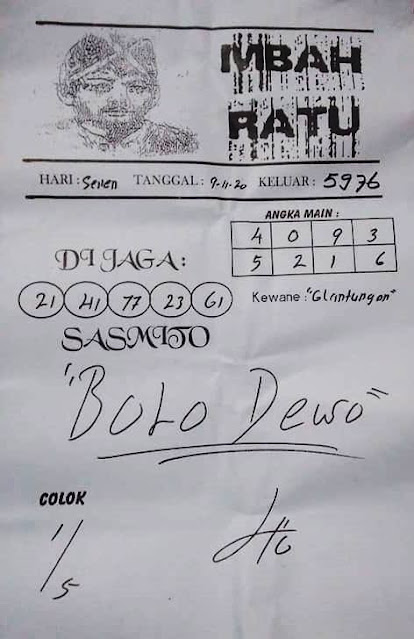 MBAH
RATU
HARI : Senen TANGGAL : 9-11-20 KELUAR : 5976
ANGKA MAIN :
4 0 9 3
5 2 1 6
DI JAGA :
21 41 77 23 61
Kewane : "Glantungan"
SASMITO
"BOLO Dewo"
COLOK
1/5